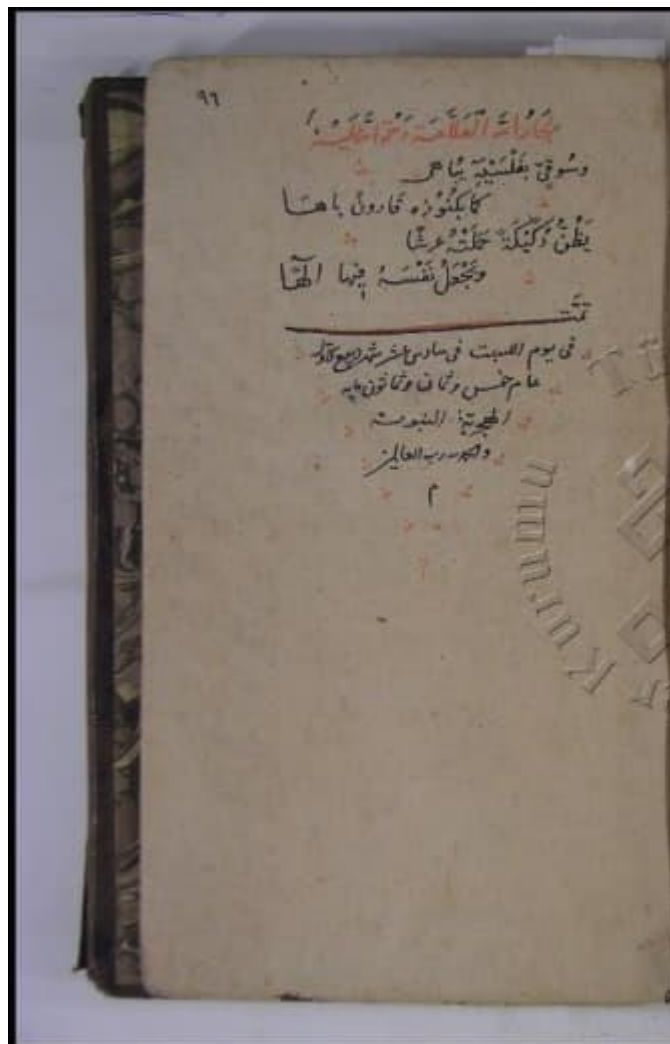 ٩٦
وَسُوقِيّ بفَلْسَيْهِ يُباهى
كما بكنُوزه قارون باها
يَظُنُّ دُكَيْكَةً حَمَلَتْهُ عرشًا
ويَجْعَلُ نَفْسَهُ فيها الٓهًا
تمَّت
فى يوم السبت فى سادس عشر شهر ربيع
عام خمس وثمانون مايه
الهجرية النبوية
والحمد لله رب العالمين
م